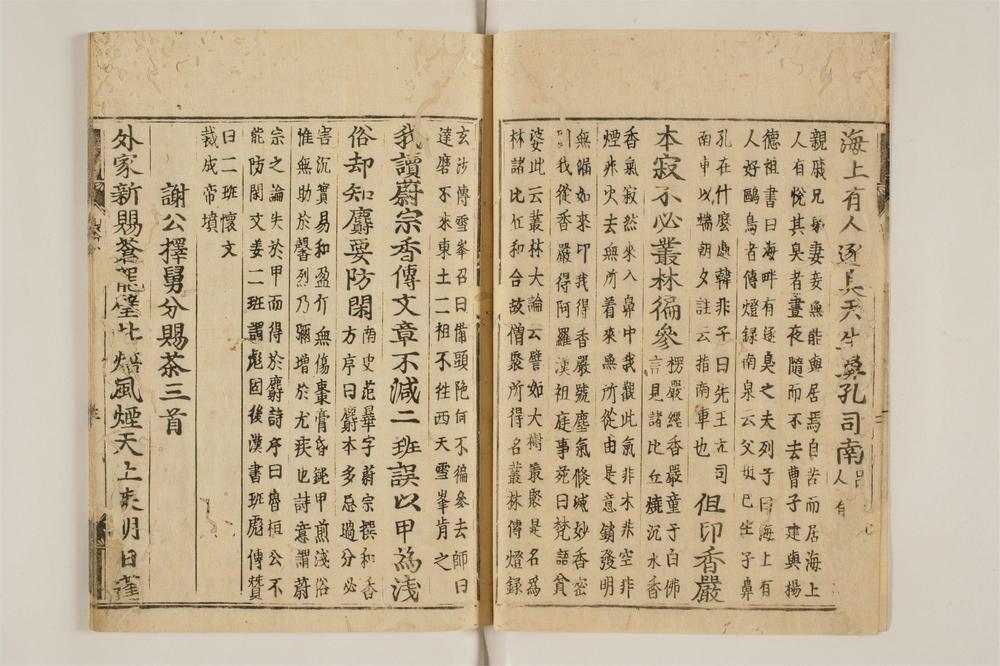 海上有人逐臭天生鼻孔司南呂
人有
親戚兄弟妻妾無能與居焉自苦而居海上
人有悅其臭者晝夜隨而不去曹子建與楊
德祖書曰海畔有逐臭之夫列子曰海上有
人好鷗鳥者傳燈録南泉云父母已生子鼻
孔在什麼處韓非子曰先王立司
南車以端朝夕註云指南車也
但印香嚴
本寂不必叢林徧參
楞嚴經香嚴童子白佛
言見諸比丘燒沉水香
香氣寂然來入鼻中我觀此氣非木非空非
煙非火去無所着來無所從由是意銷發明
無漏如來印我得香嚴號塵氣倏滅妙香密
圓我從香嚴得阿羅漢祖庭事苑曰梵語貧
婆此云叢林大論云譬如大樹叢聚是名爲
林諸比丘和合故僧聚所得名叢林傳燈録
玄沙傳雪峯召曰備頭陁何不徧參去師曰
達磨不來東土二祖不往西天雪峯肯之
我讀蔚宗香傳文章不減二班誤以甲爲淺
俗却知麝要防閑
南史范曄字蔚宗撰和香
方序曰麝本多忌過分必
害沉實易和盈斤無傷棗膏昏鈍甲煎淺俗
惟無助於馨烈乃彌增於尤疾也詩意謂蔚
宗之論失於甲而得於麝詩序曰魯桓公不
能防閑文姜二班謂彪固後漢書班彪傳贊
曰二班懷文
裁成帝墳
謝公擇舅分賜茶三首
外家新賜蒼龍璧北焙風煙天上來明日蓬